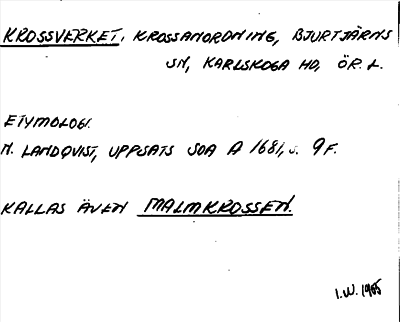 KROSSVERKET, KROSSANORDNING, BJURTJÄRNS
SN, KARLSKOGA HD, ÖR. L.
ETYMOLOGI.
N. LANDQVIST, UPPSATS SOA A 1681, s. 9 F.
KALLAS ÄVEN MALMKROSSEN.
I.W. 1985